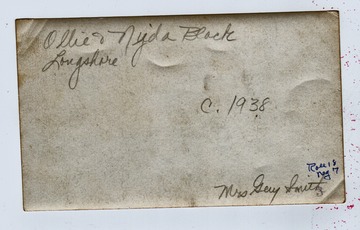 Ollie & Nyda Black
Longshore
C. 1938
Roll 13
Neg 7
Mrs Gery Smith